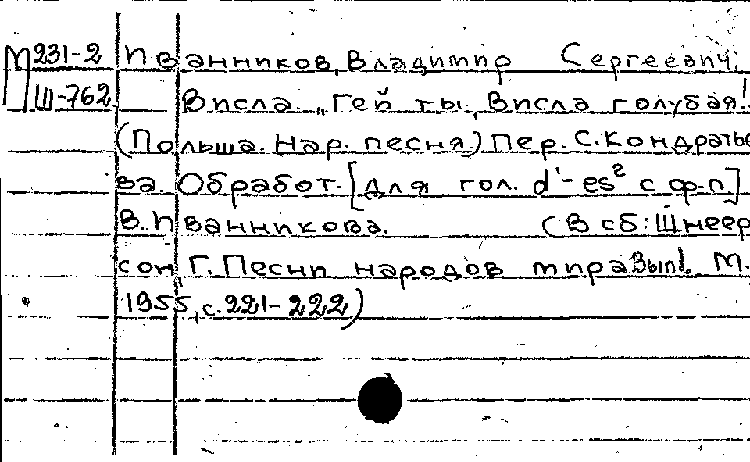 М231-2 Иванников, Владимир Сергеевич.
Ш-762 Висла. „Гей ты, Висла голубая!
(Польша. Нар. песня.) Пер. С. Кондратье
ва. Обработ. [для гол. d¹-es² с ф-п.]
В. Иванникова. (В сб: Шнеер
сон, Г. Песни народов мира Вып I. М.
1955, с. 221-222)